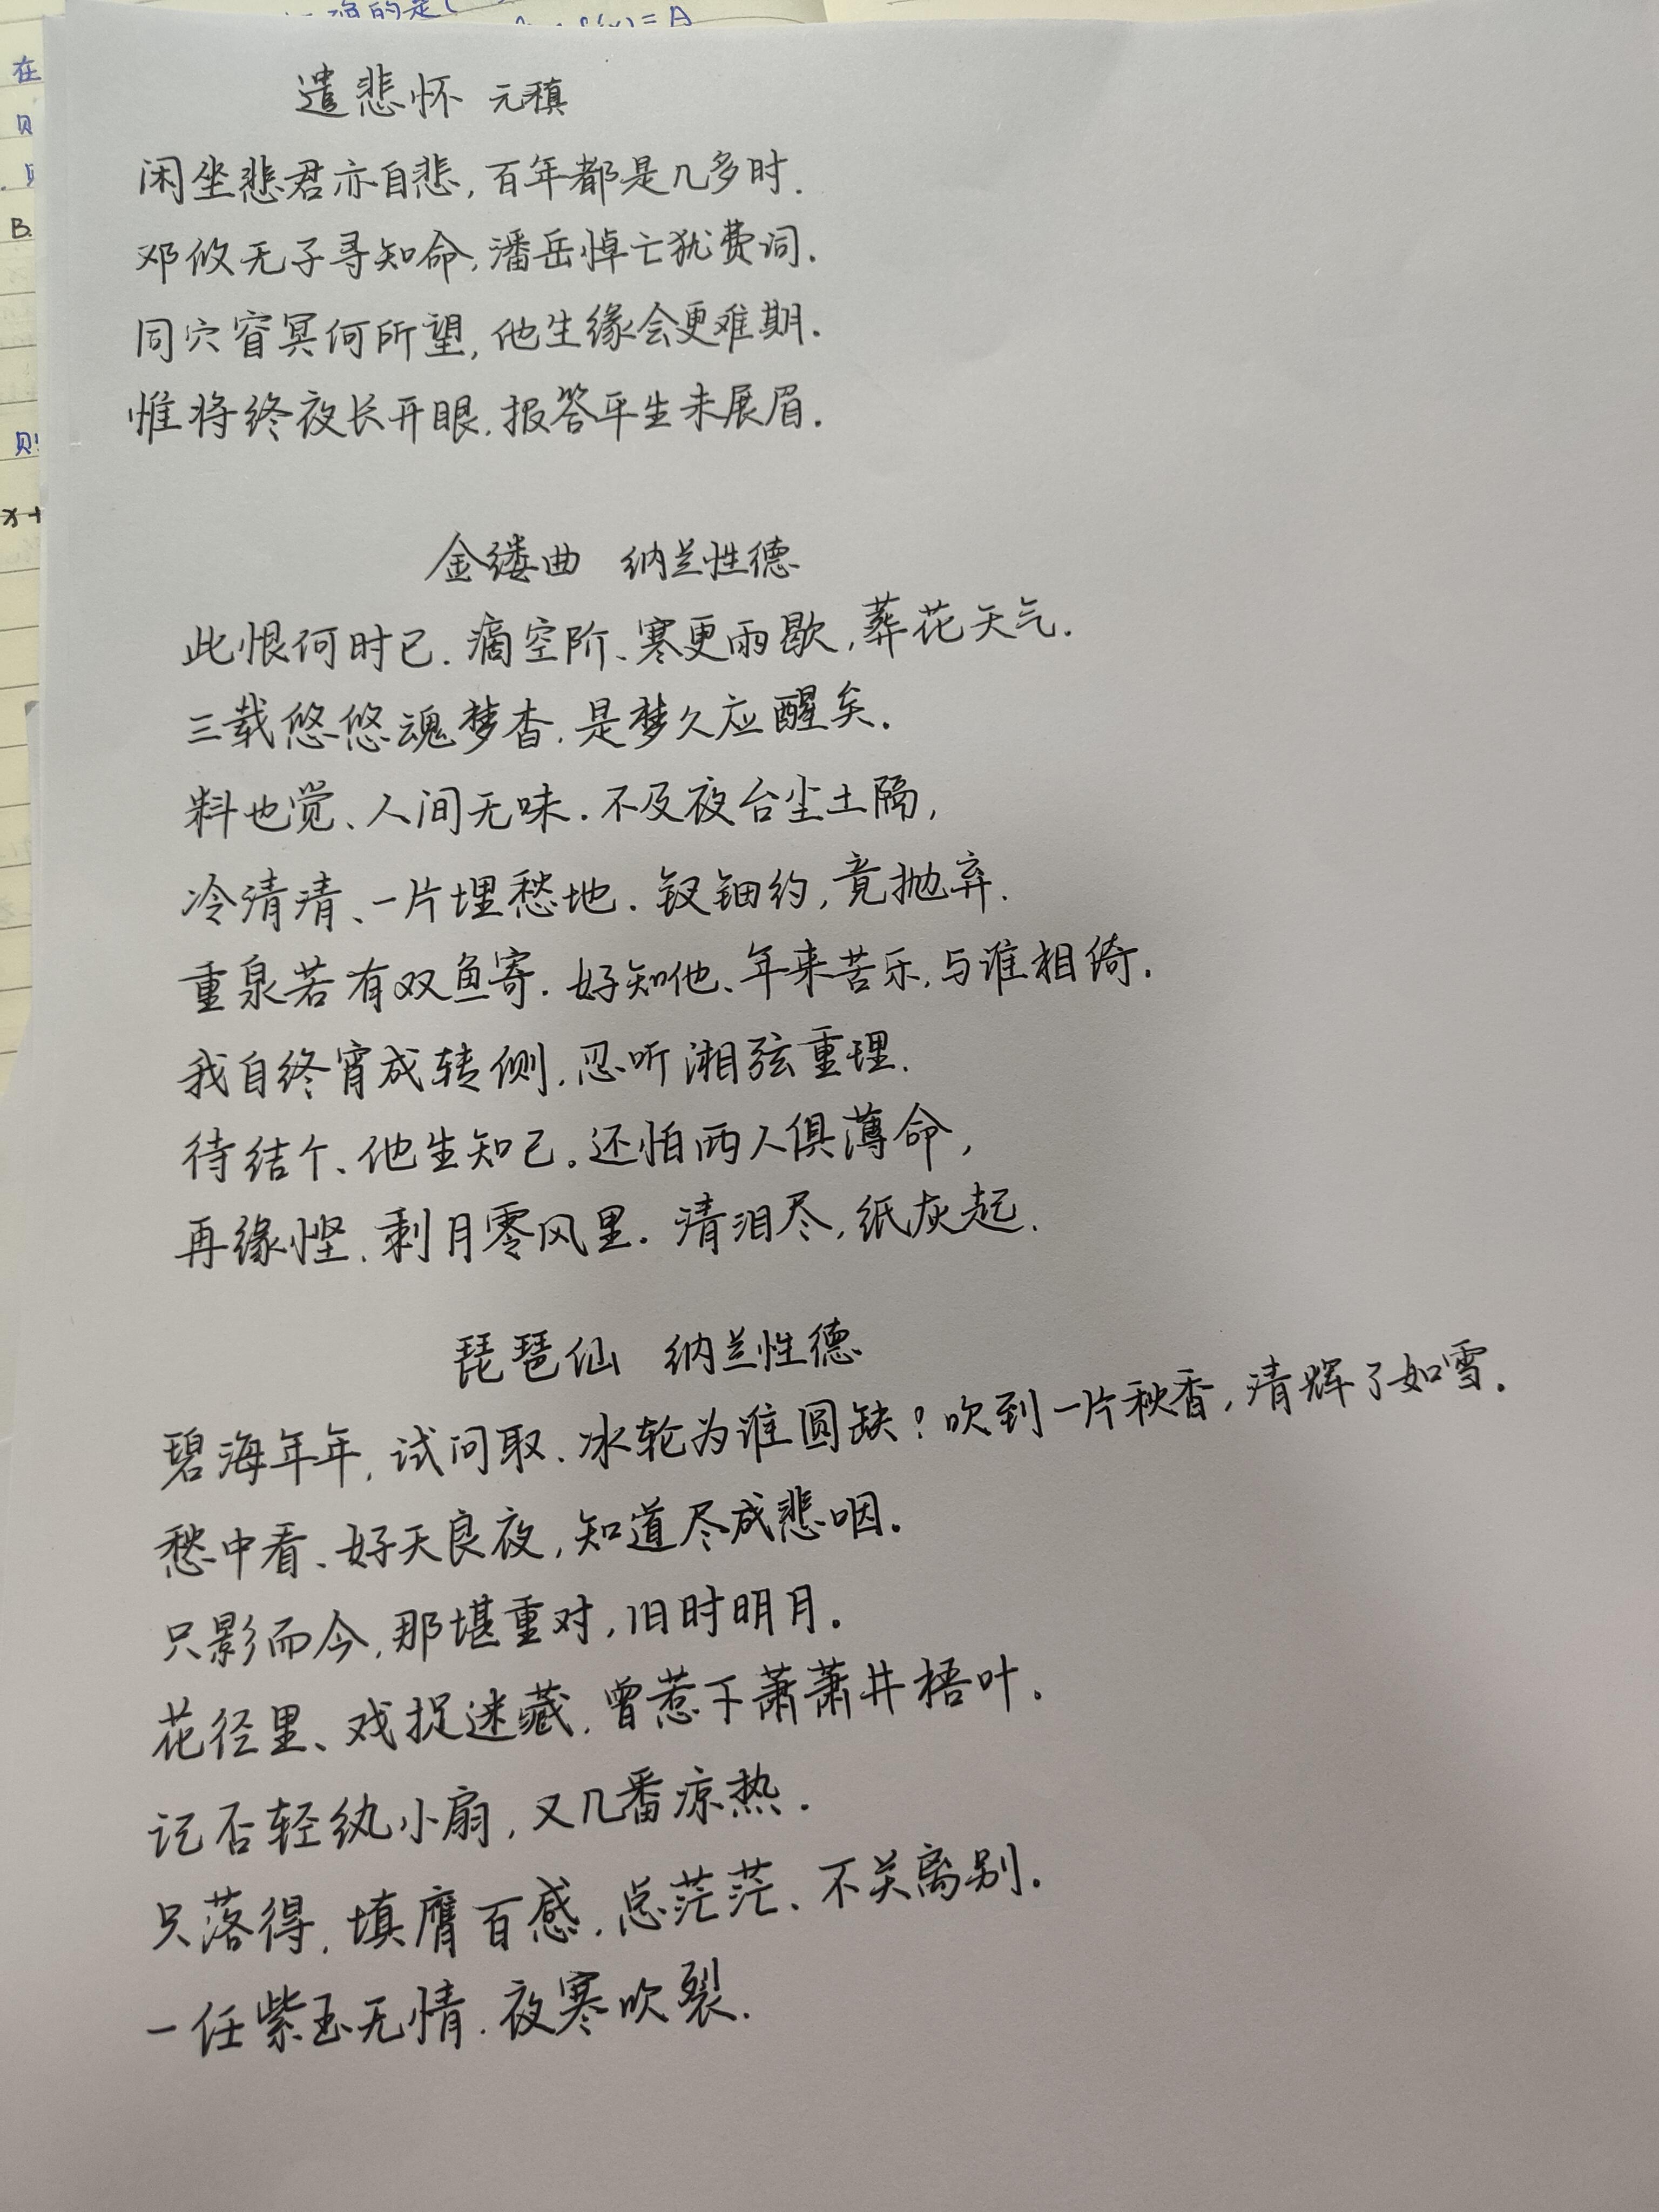 的是(
f(x)=A
在
B.
则
x+
遣悲怀 元稹
闲坐悲君亦自悲,百年都是几多时.
邓攸无子寻知命,潘岳悼亡犹费词.
同穴窅冥何所望,他生缘会更难期.
惟将终夜长开眼.报答平生未展眉.
金缕曲 纳兰性德
此恨何时已.滴空阶、寒更雨歇,葬花天气.
三载悠悠魂梦杳.是梦久应醒矣.
料也觉、人间无味.不及夜台尘土隔,
冷清清、一片埋愁地.钗钿约,竟抛弃.
重泉若有双鱼寄.好知他、年来苦乐,与谁相倚.
我自终宵成转侧.忍听湘弦重理.
待结个、他生知己.还怕两人俱薄命,
再缘悭.剩月零风里.清泪尽,纸灰起.
琵琶仙 纳兰性德
碧海年年,试问取、冰轮为谁圆缺?吹到一片秋香,清辉了如雪.
愁中看、好天良夜,知道尽成悲咽.
只影而今,那堪重对,旧时明月.
花径里、戏捉迷藏,曾惹下萧萧井梧叶.
记否轻纨小扇,又几番凉热.
只落得,填膺百感.总茫茫、不关离别.
一任紫玉无情.夜寒吹裂.